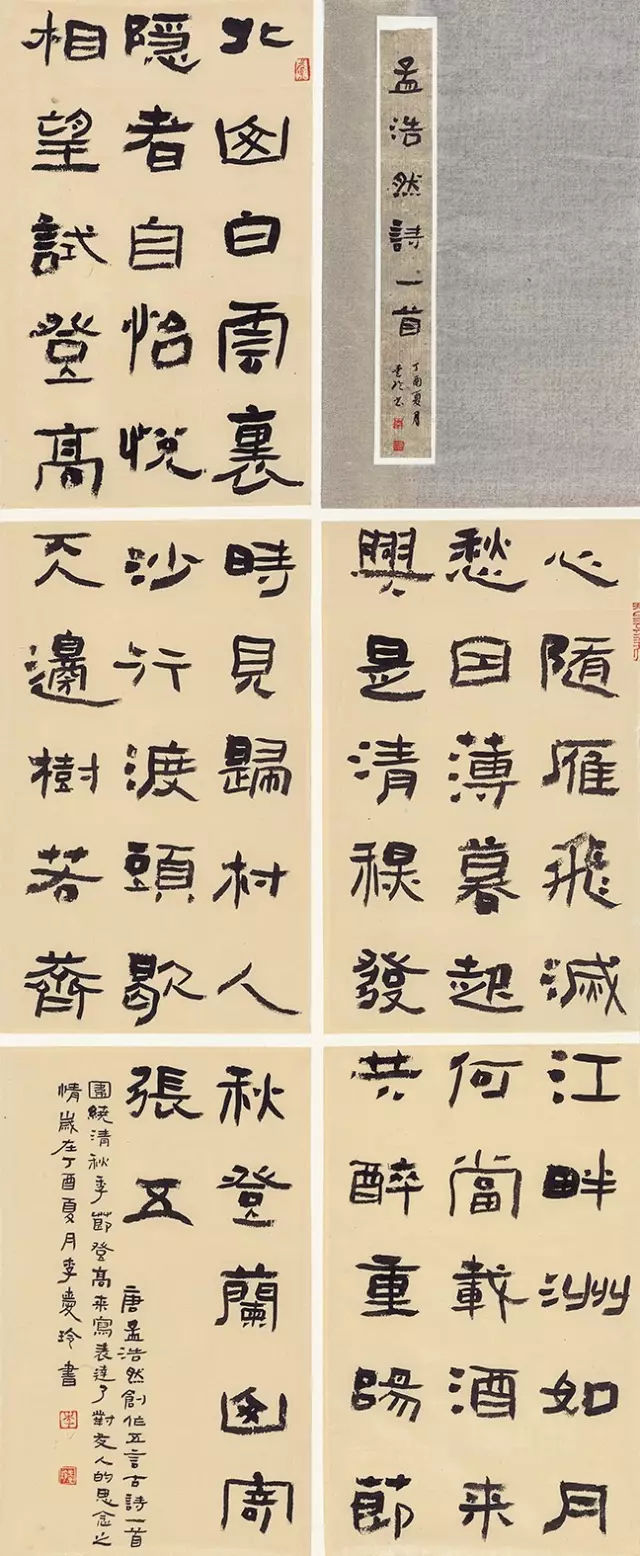 孟浩然詩一首
丁酉夏月
慶玲書
北山白雲裏
隱者自怡悅
相望試登高
心隨雁飛滅
愁因薄暮起
興是清秋發
時見歸村人
沙行渡頭歇
天邊樹若薺
江畔洲如月
何當載酒來
共醉重陽節
秋登蘭山寄
張五
唐孟浩然創作五言古詩一首
圍繞清秋季節登高來寫表達了對友人的思念之
情歲在丁酉夏月李慶玲書